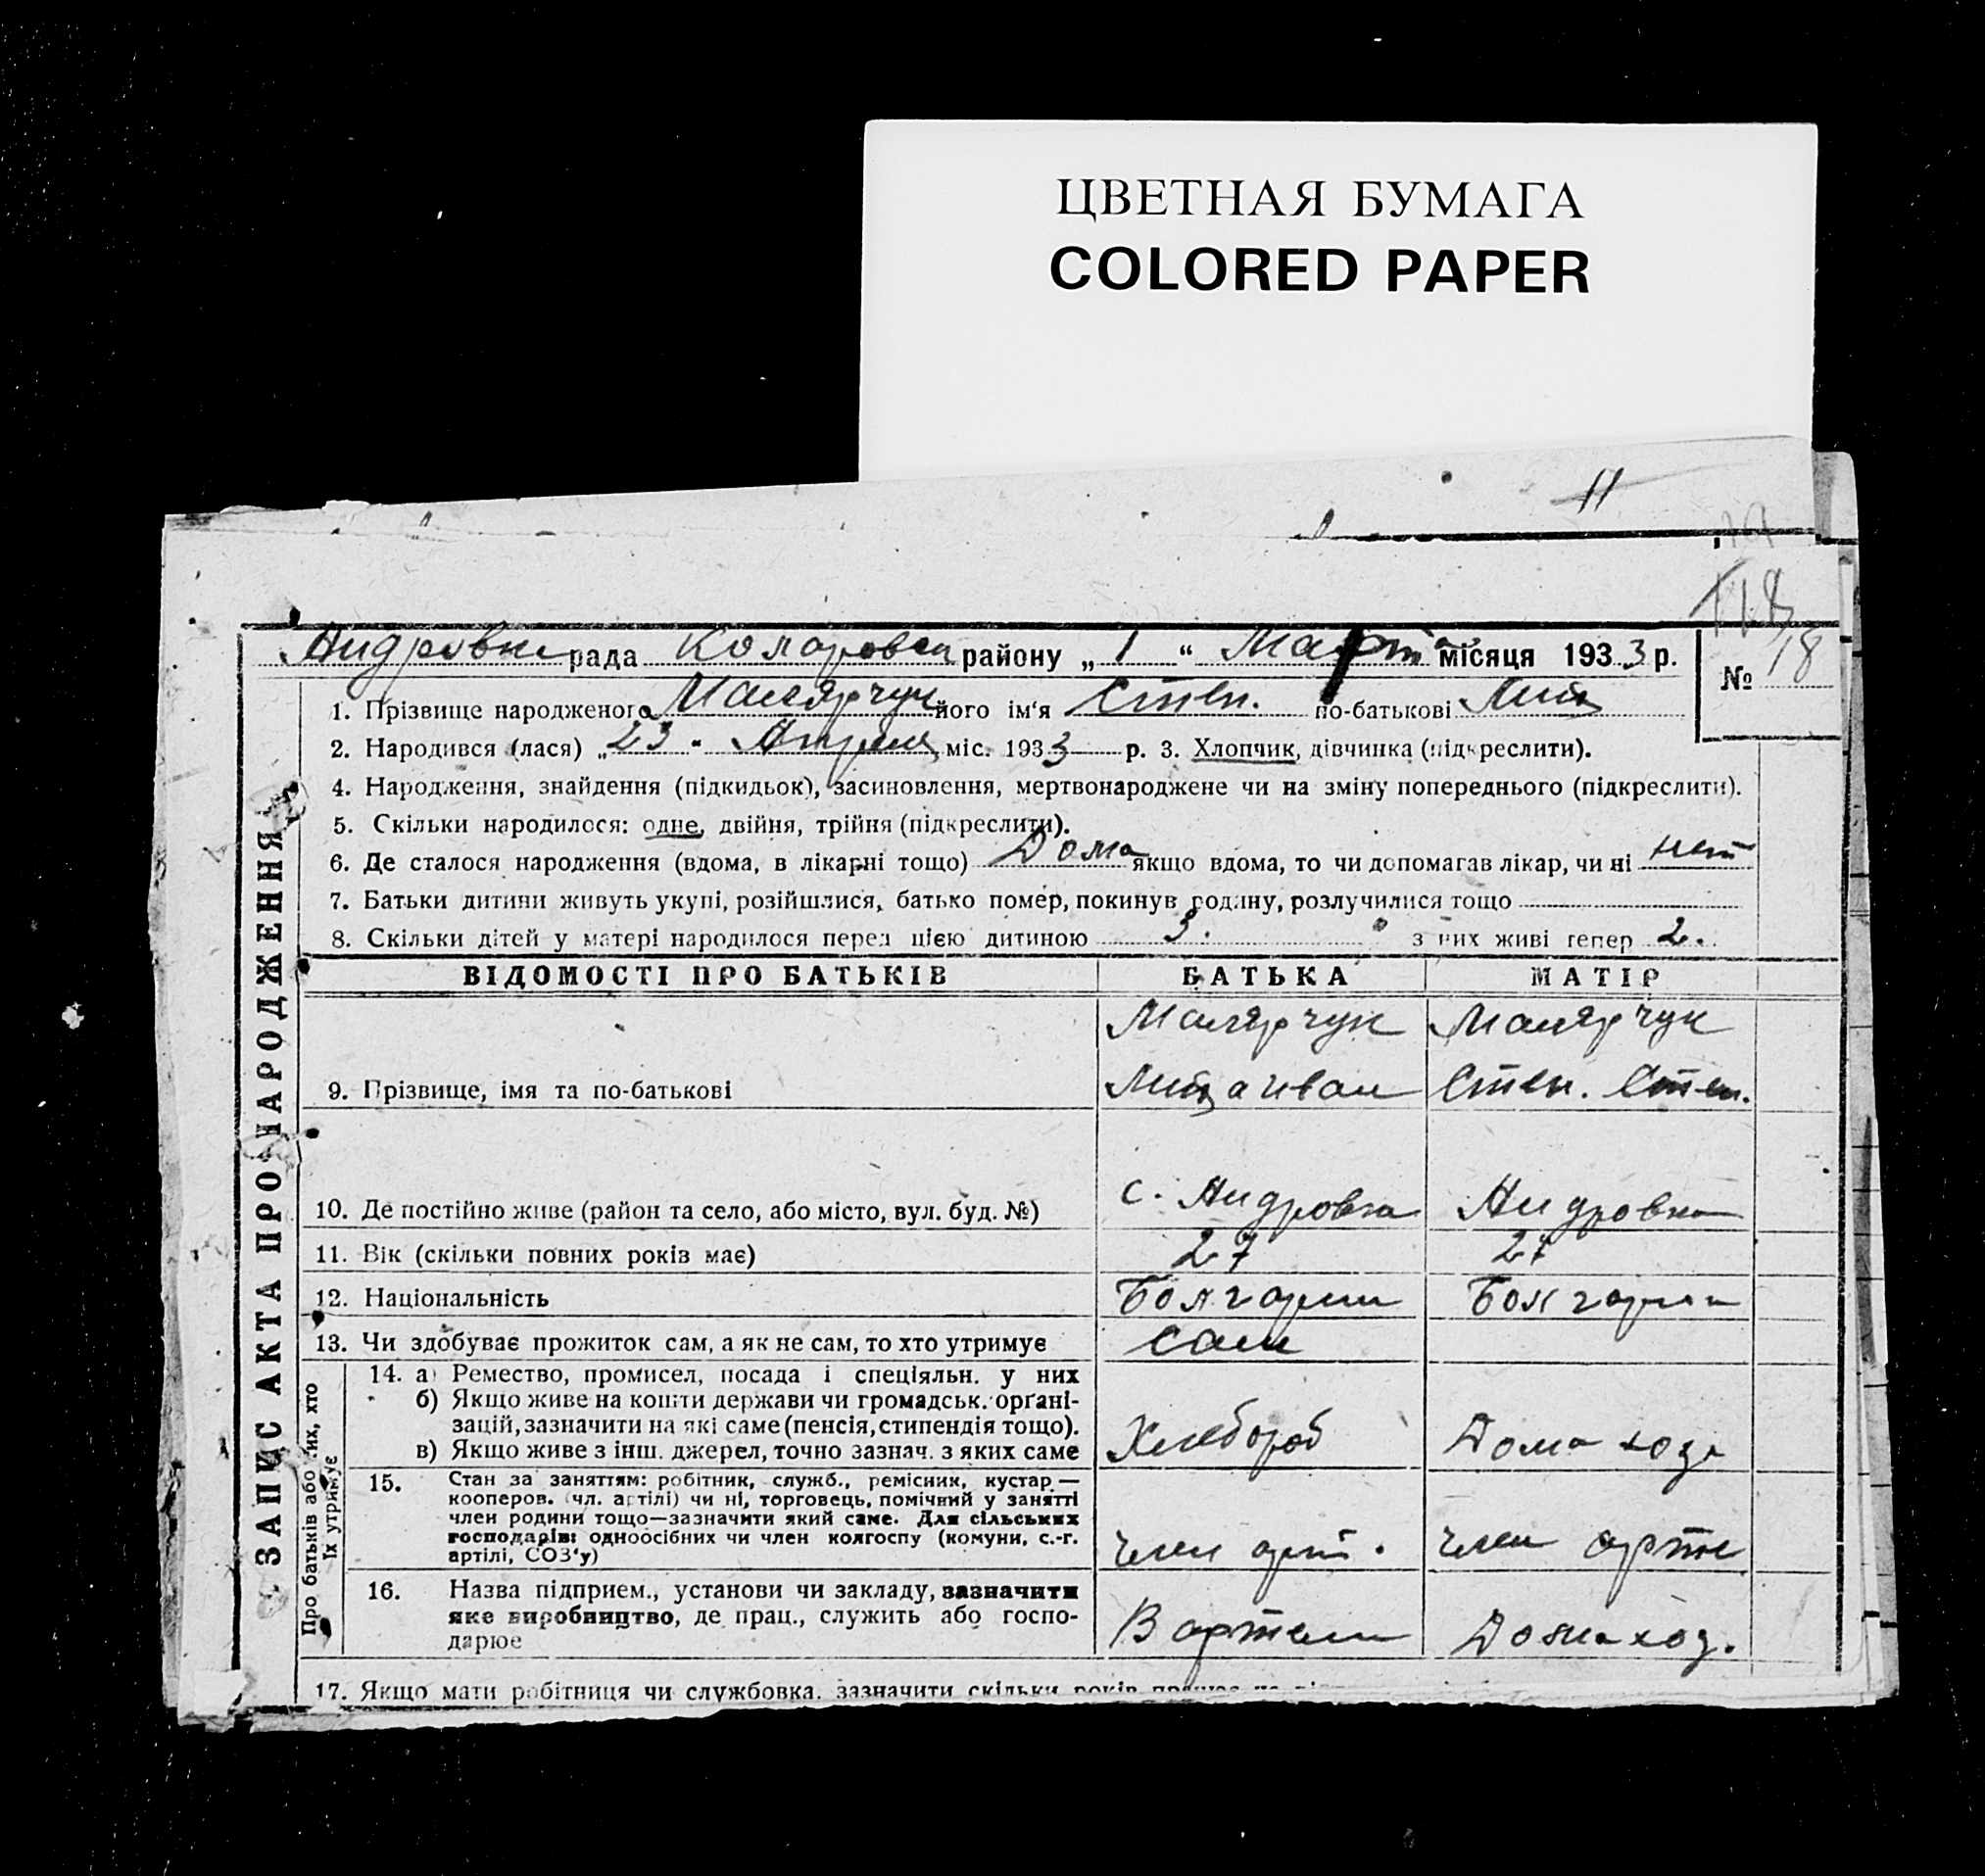 ЦВЕТНАЯ БУМАГА
COLORED PAPER
11
118
Андровка рада Коларовск району „ 1 “ Марта місяця 1933 р.
№ 18
1. Прізвище народженого Малярчук його ім‘я Степ. по-батькові
2. Народився (лася) „ 23 " Апреля міс. 1933 р. 3. Хлопчик, дівчинка (підкреслити).
4. Народження, знайдення (підкидьок), засиновлення, мертвонароджене чи на зміну попереднього (підкреслити).
5. Скільки народилося: одне, двійня, трійня (підкреслити).
6. Де сталося народження (вдома, в лікарні тощо) Дома якщо вдома, то чи допомагав лікар, чи ні нет
7. Батьки дитини живуть укупі, розійшлися, батько помер, покинув родину, розлучилися тощо
8. Скільки дітей у матері народилося перед цією дитиною 3. з них живі тепер 2.
ЗАПИС АКТА ПРО НАРОДЖЕННЯ
ВІДОМОСТІ ПРО БАТЬКІВ БАТЬКА МАТІР
Малярчук Малярчук
9. Прізвище, імя та по-батькові Иван Степ. Степ.
10. Де постійно живе (район та село, або місто, вул. буд. №) с. Андровка Андровка
11. Вік (скільки повних років має) 27 27
12. Національність Болгарин Болгарка
13. Чи здобуває прожиток сам, а як не сам, то хто утримує сам
Про батьків або тих, хто їх утримує
14. а) Ремество, промисел, посада і спеціяльн. у них
б) Якщо живе на кошти держави чи громадськ. орґані-
зацій, зазначити на які саме (пенсія, стипендія тощо).
в) Якщо живе з інш. джерел, точно зазнач. з яких саме Хлебороб Дома хоз
15. Стан за заняттям: робітник, служб., ремісник, кустар —
кооперов. (чл. артілі) чи ні, торговець, помічний у занятті
член родини тощо—зазначити який саме. Для сільських
господарів: одноосібних чи член колгоспу (комуни, с.-г.
артілі, СОЗ‘у) член арт. член арте
16. Назва підприєм., установи чи закладу, зазначити
яке виробництво, де прац., служить або госпо-
дарює В артели Домахоз.
17. Якщо мати робітниця чи службовка, зазначити скільки років